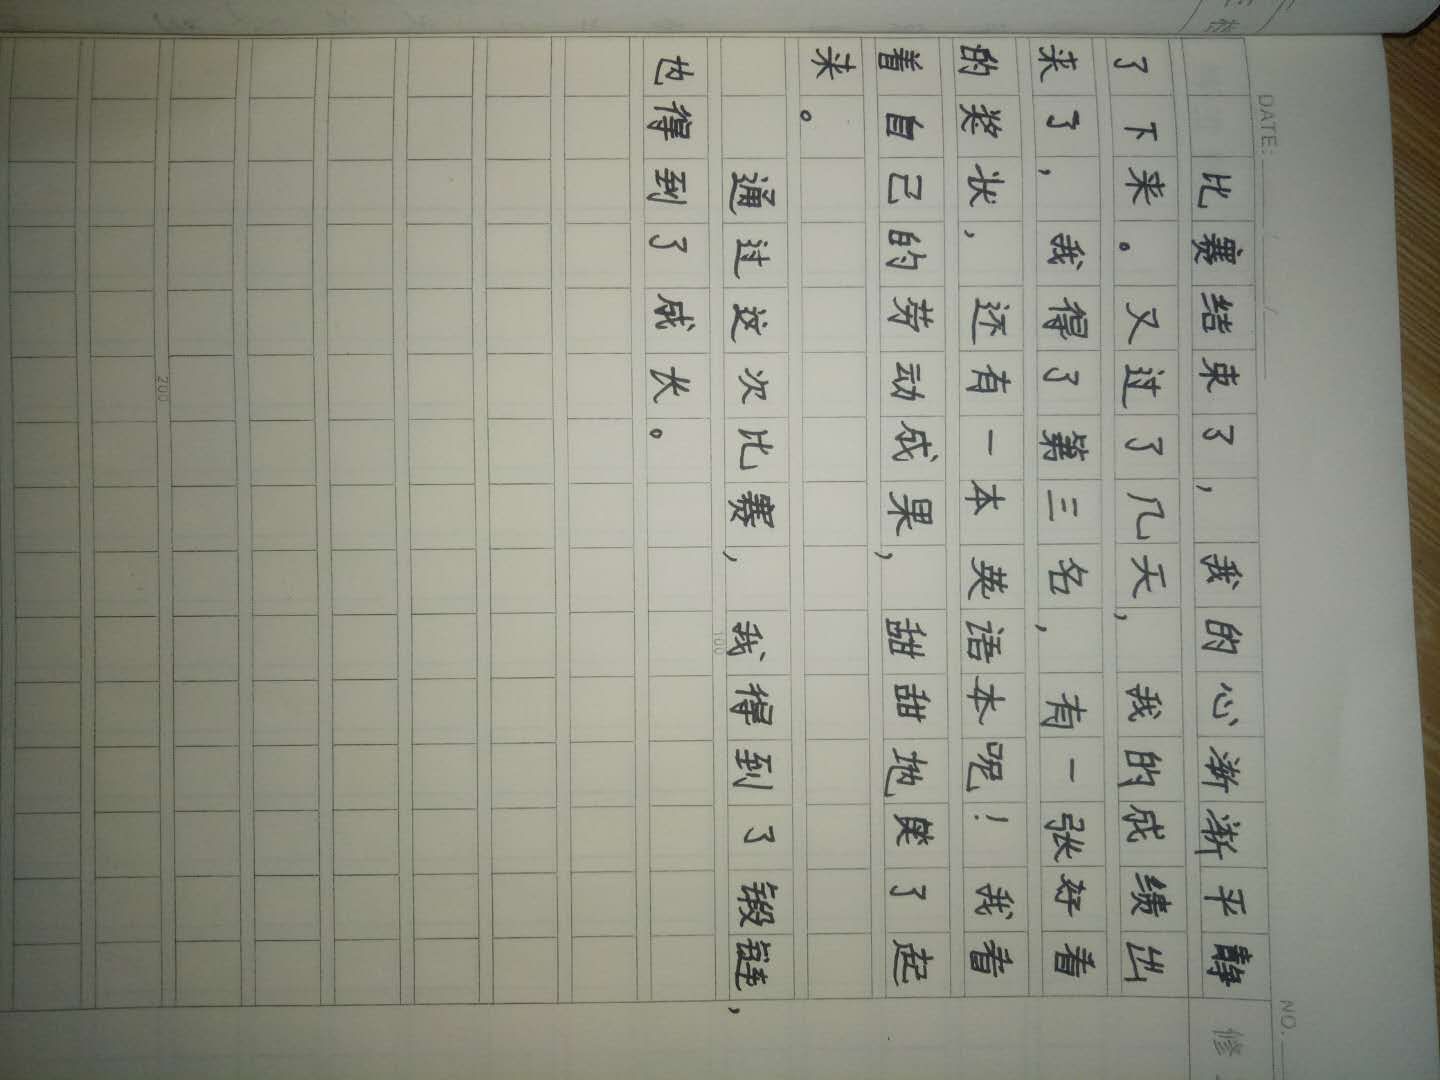 DATE: / /
NO.
比赛结束了，我的心渐渐平静
了下来。又过了几天，我的成绩出
来了，我得了第三名，有一张好看
的奖状，还有一本英语本呢！我看
着自己的劳动成果，甜甜地笑了起
来。
通过这次比赛，我得到了锻链，
100
也得到了成长。
200
修